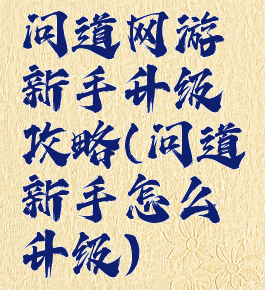 问道网游
新手升级
攻略(问道
新手怎么
升级)